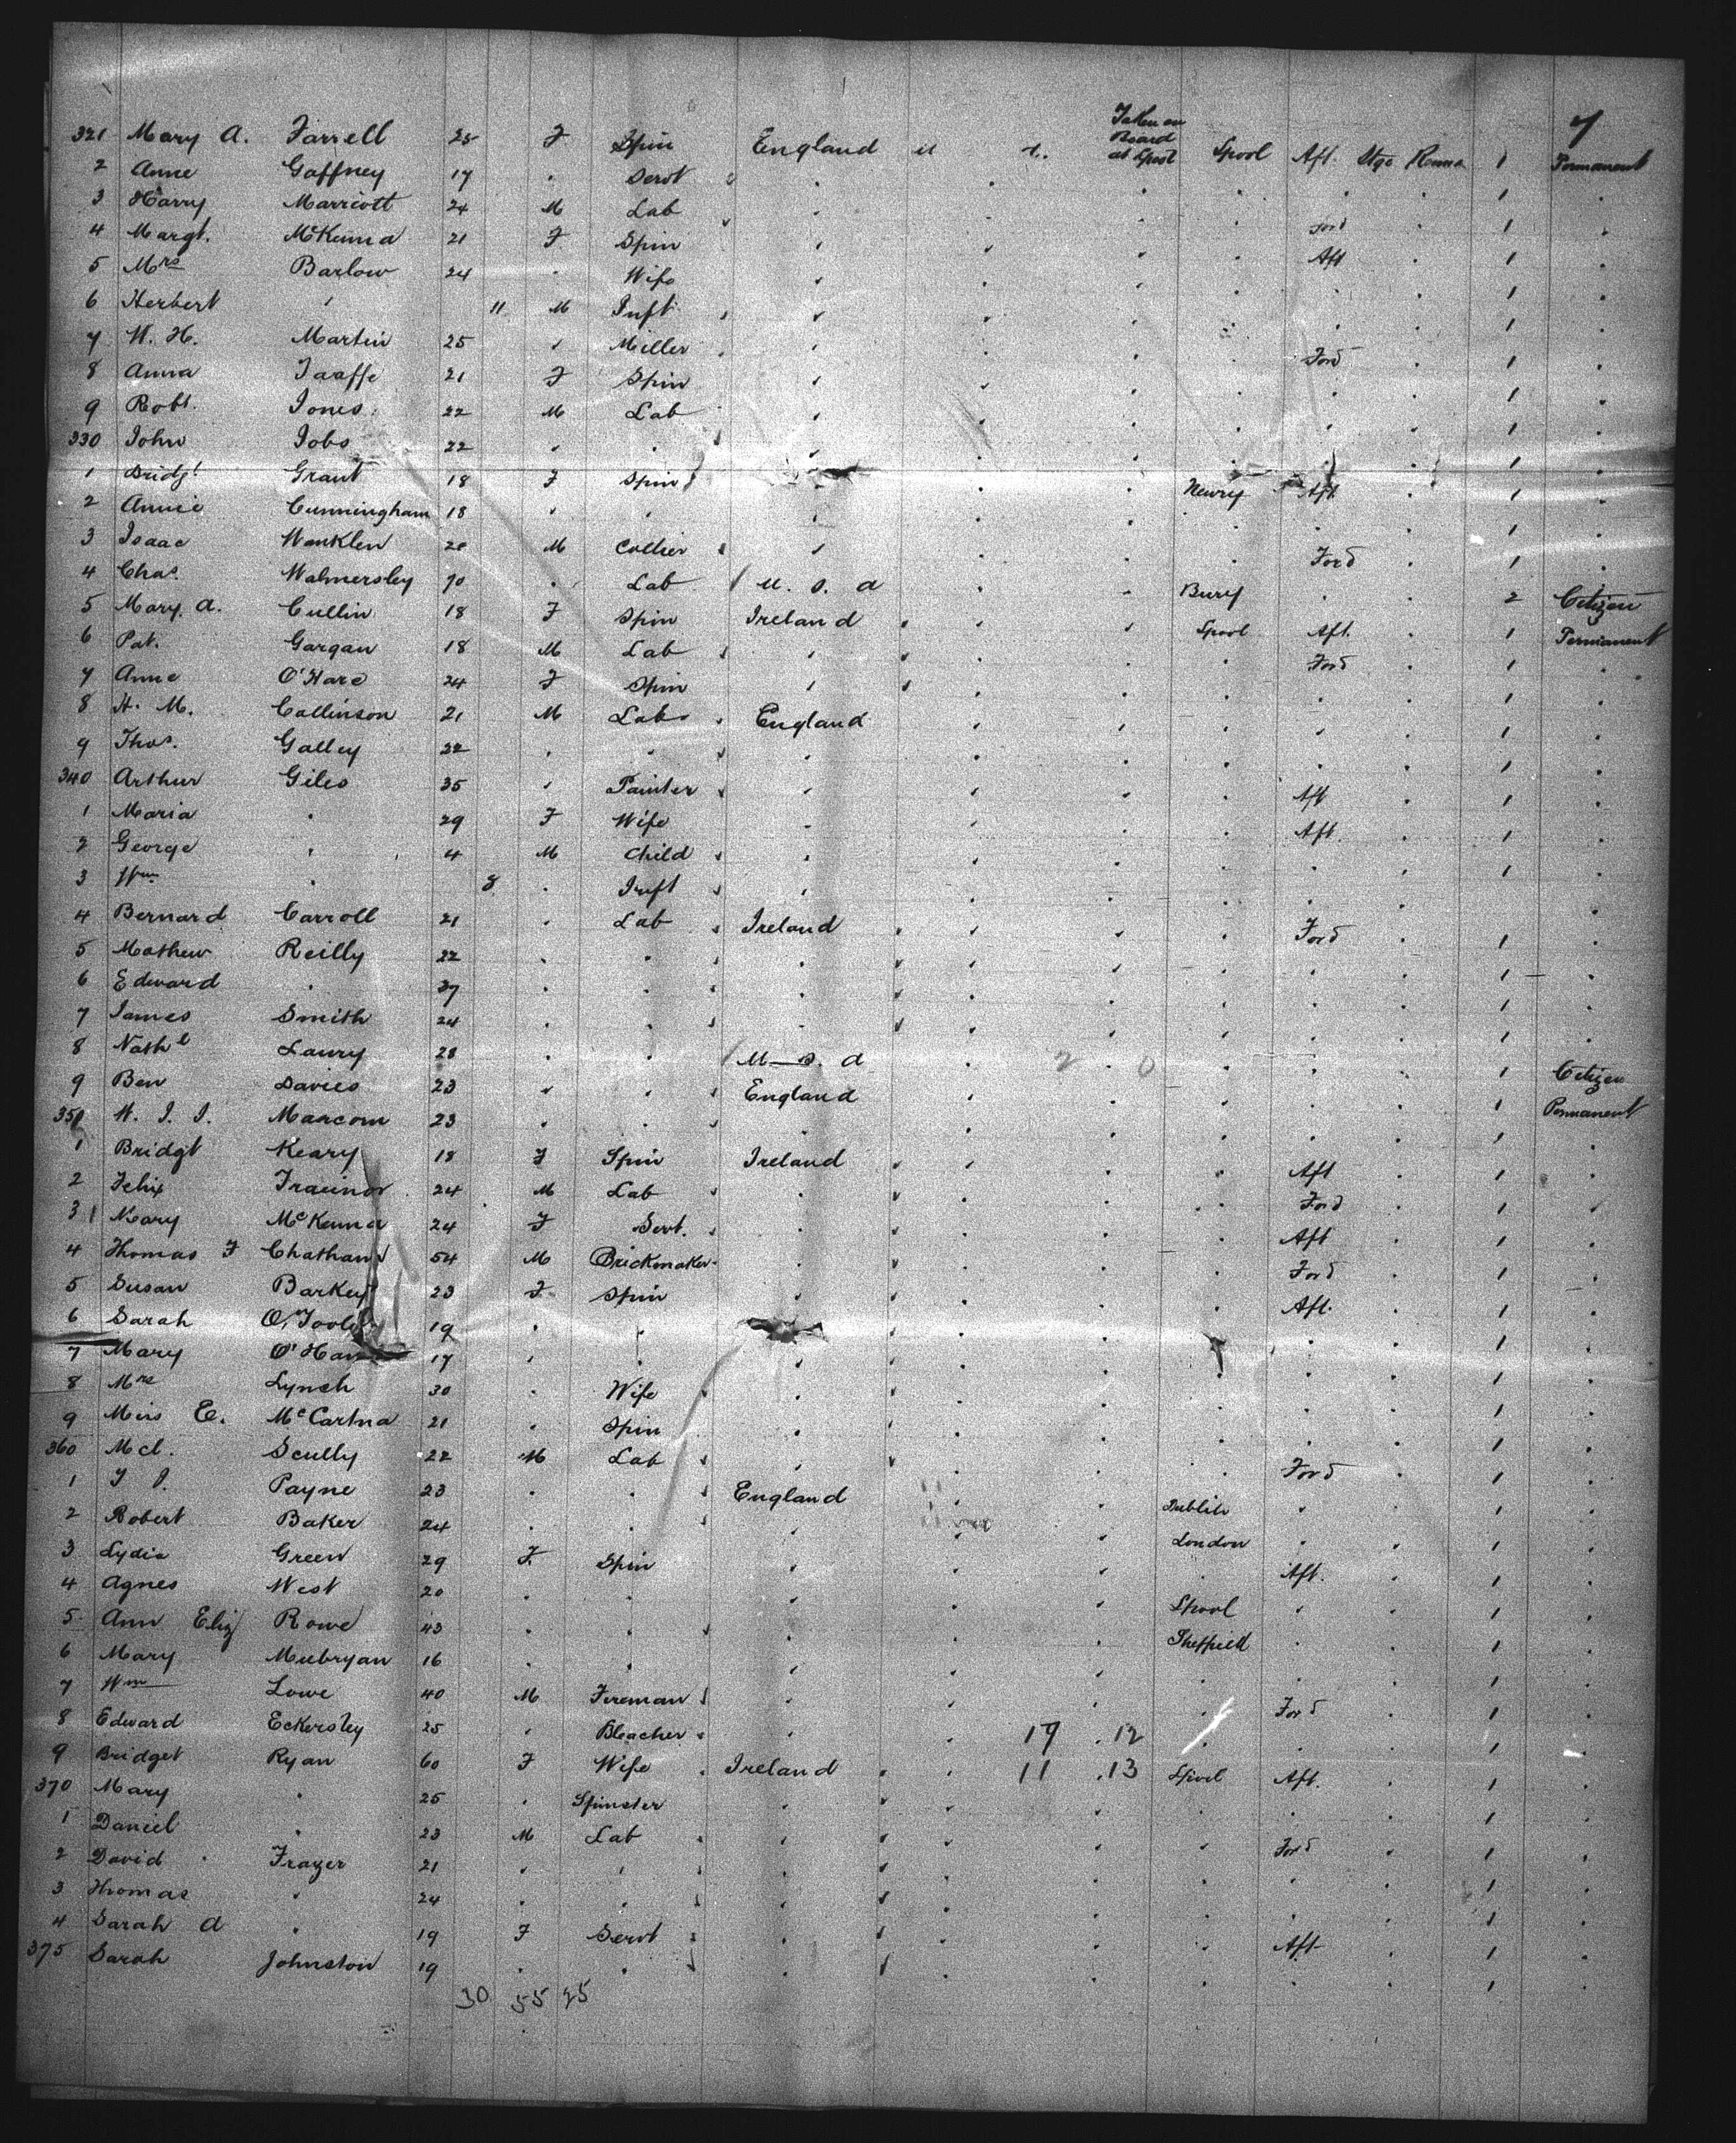 7
321 Mary A. Farrell 25 F Spin England Taken on Board at Lpool Lpool Aft. Stge 1 Permanent
2 Anne Gaffney 17 " Servt " 1 "
3 Harry Marriott 24 M Lab " Ford 1 "
4 Margt. McKenna 21 F Spin " Aft 1 "
5 Mrs Barlow 24 " Wife " 1 "
6 Herbert " 11 M Inft " 1 "
7 W. H. Martin 25 " Miller " Ford 1 "
8 Anna Taaffe 21 F Spin " 1 "
9 Robt. Jones 22 M Lab " 1 "
330 John Jobs 22 " " " 1 "
1 Bridgt Grant 18 F Spin " Newry Aft 1 "
2 Annie Cunningham 18 " " " 1 "
3 Isaac M Collier " Ford 1 "
4 Chas. Walmersley 70 " Lab U. S. A Bury " 2 Citizen
5 Mary A. Cullin 18 F Spin Ireland Lpool Aft. 1 Permanent
6 Pat. Gargan 18 M Lab " Ford 1 "
7 Anne O'Hare 24 F Spin " 1 "
8 H. M. Collinson 21 M Lab England 1 "
9 Thos. Galley 22 " " " 1 "
340 Arthur Giles 35 " Painter " Aft 1 "
1 Maria " 29 F Wife " Aft. 1 "
2 George " 4 M Child " 1 "
3 Wm " 8 " Inft "
4 Bernard Carroll 21 " Lab Ireland Ford 1 "
5 Mathew Reilly 22 " " " 1 "
6 Edward " 27 " " " 1 "
7 James Smith 24 " " " 1 "
8 Nathl Laury 28 " " U. S. A 2 0 1 Citizen
9 Ben Davies 23 " " England 1 Permanent
350 W. J. J. Marcom 23 " " " 1 "
1 Bridgt Keary 18 F Spin Ireland Aft 1 "
2 Felix Trainor 24 M Lab " Ford 1 "
3 Mary McKenna 24 F Servt. " Aft 1 "
4 Thomas F Chatham 54 M Brickmaker " Ford 1 "
5 Susan 23 F Spin " Aft. 1 "
6 Sarah O'Toole 19 " " " 1 "
7 Mary 17 " " " 1 "
8 Mrs Lynch 30 " Wife " 1 "
9 Miss E. McCartna 21 " Spin " 1 "
360 Mcl. Scully 22 M Lab " Ford 1 "
1 Payne 23 " " England Dublin " 1 "
2 Robert Baker 24 " " " London " 1 "
3 Lydia Green 29 F. Spin " " Aft. 1 "
4 Agnes West 20 " " " Lpool " 1 "
5 Ann Eliz Rowe 43 " " " Sheffield " 1 "
6 Mary Mubryan 16 " " " 1 "
7 Wm Lowe 40 M Fireman " Ford 1 "
8 Edward Eckersley 25 " Bleacher " 19 . 12 1 "
9 Bridget Ryan 60 F Wife Ireland 11 . 13 Lpool Aft. 1 "
370 Mary " 25 " Spinster " 1 "
1 Daniel " 23 M Lab " Ford 1 "
2 David Frazer 21 " " " 1 "
3 Thomas " 24 " " " 1 "
4 Sarah A " 19 F Servt " Aft 1 "
375 Sarah Johnston 19 " " " 1 "
30 55 25